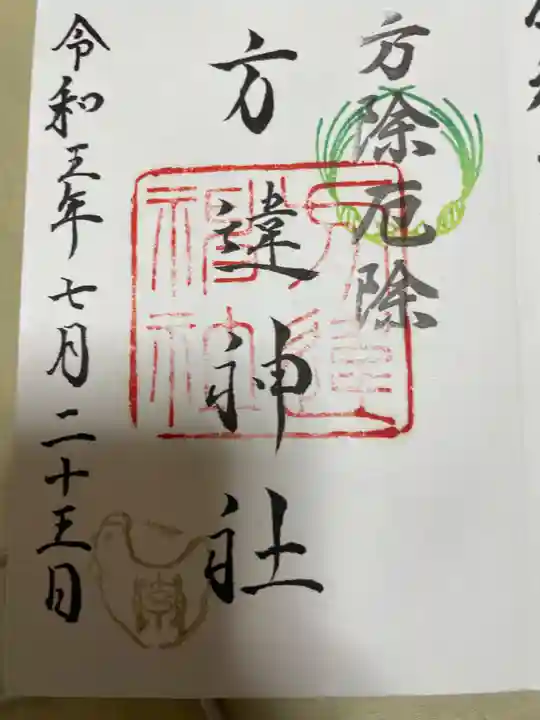 方除厄除
方違神社
方違神社
令和五年七月二十五日